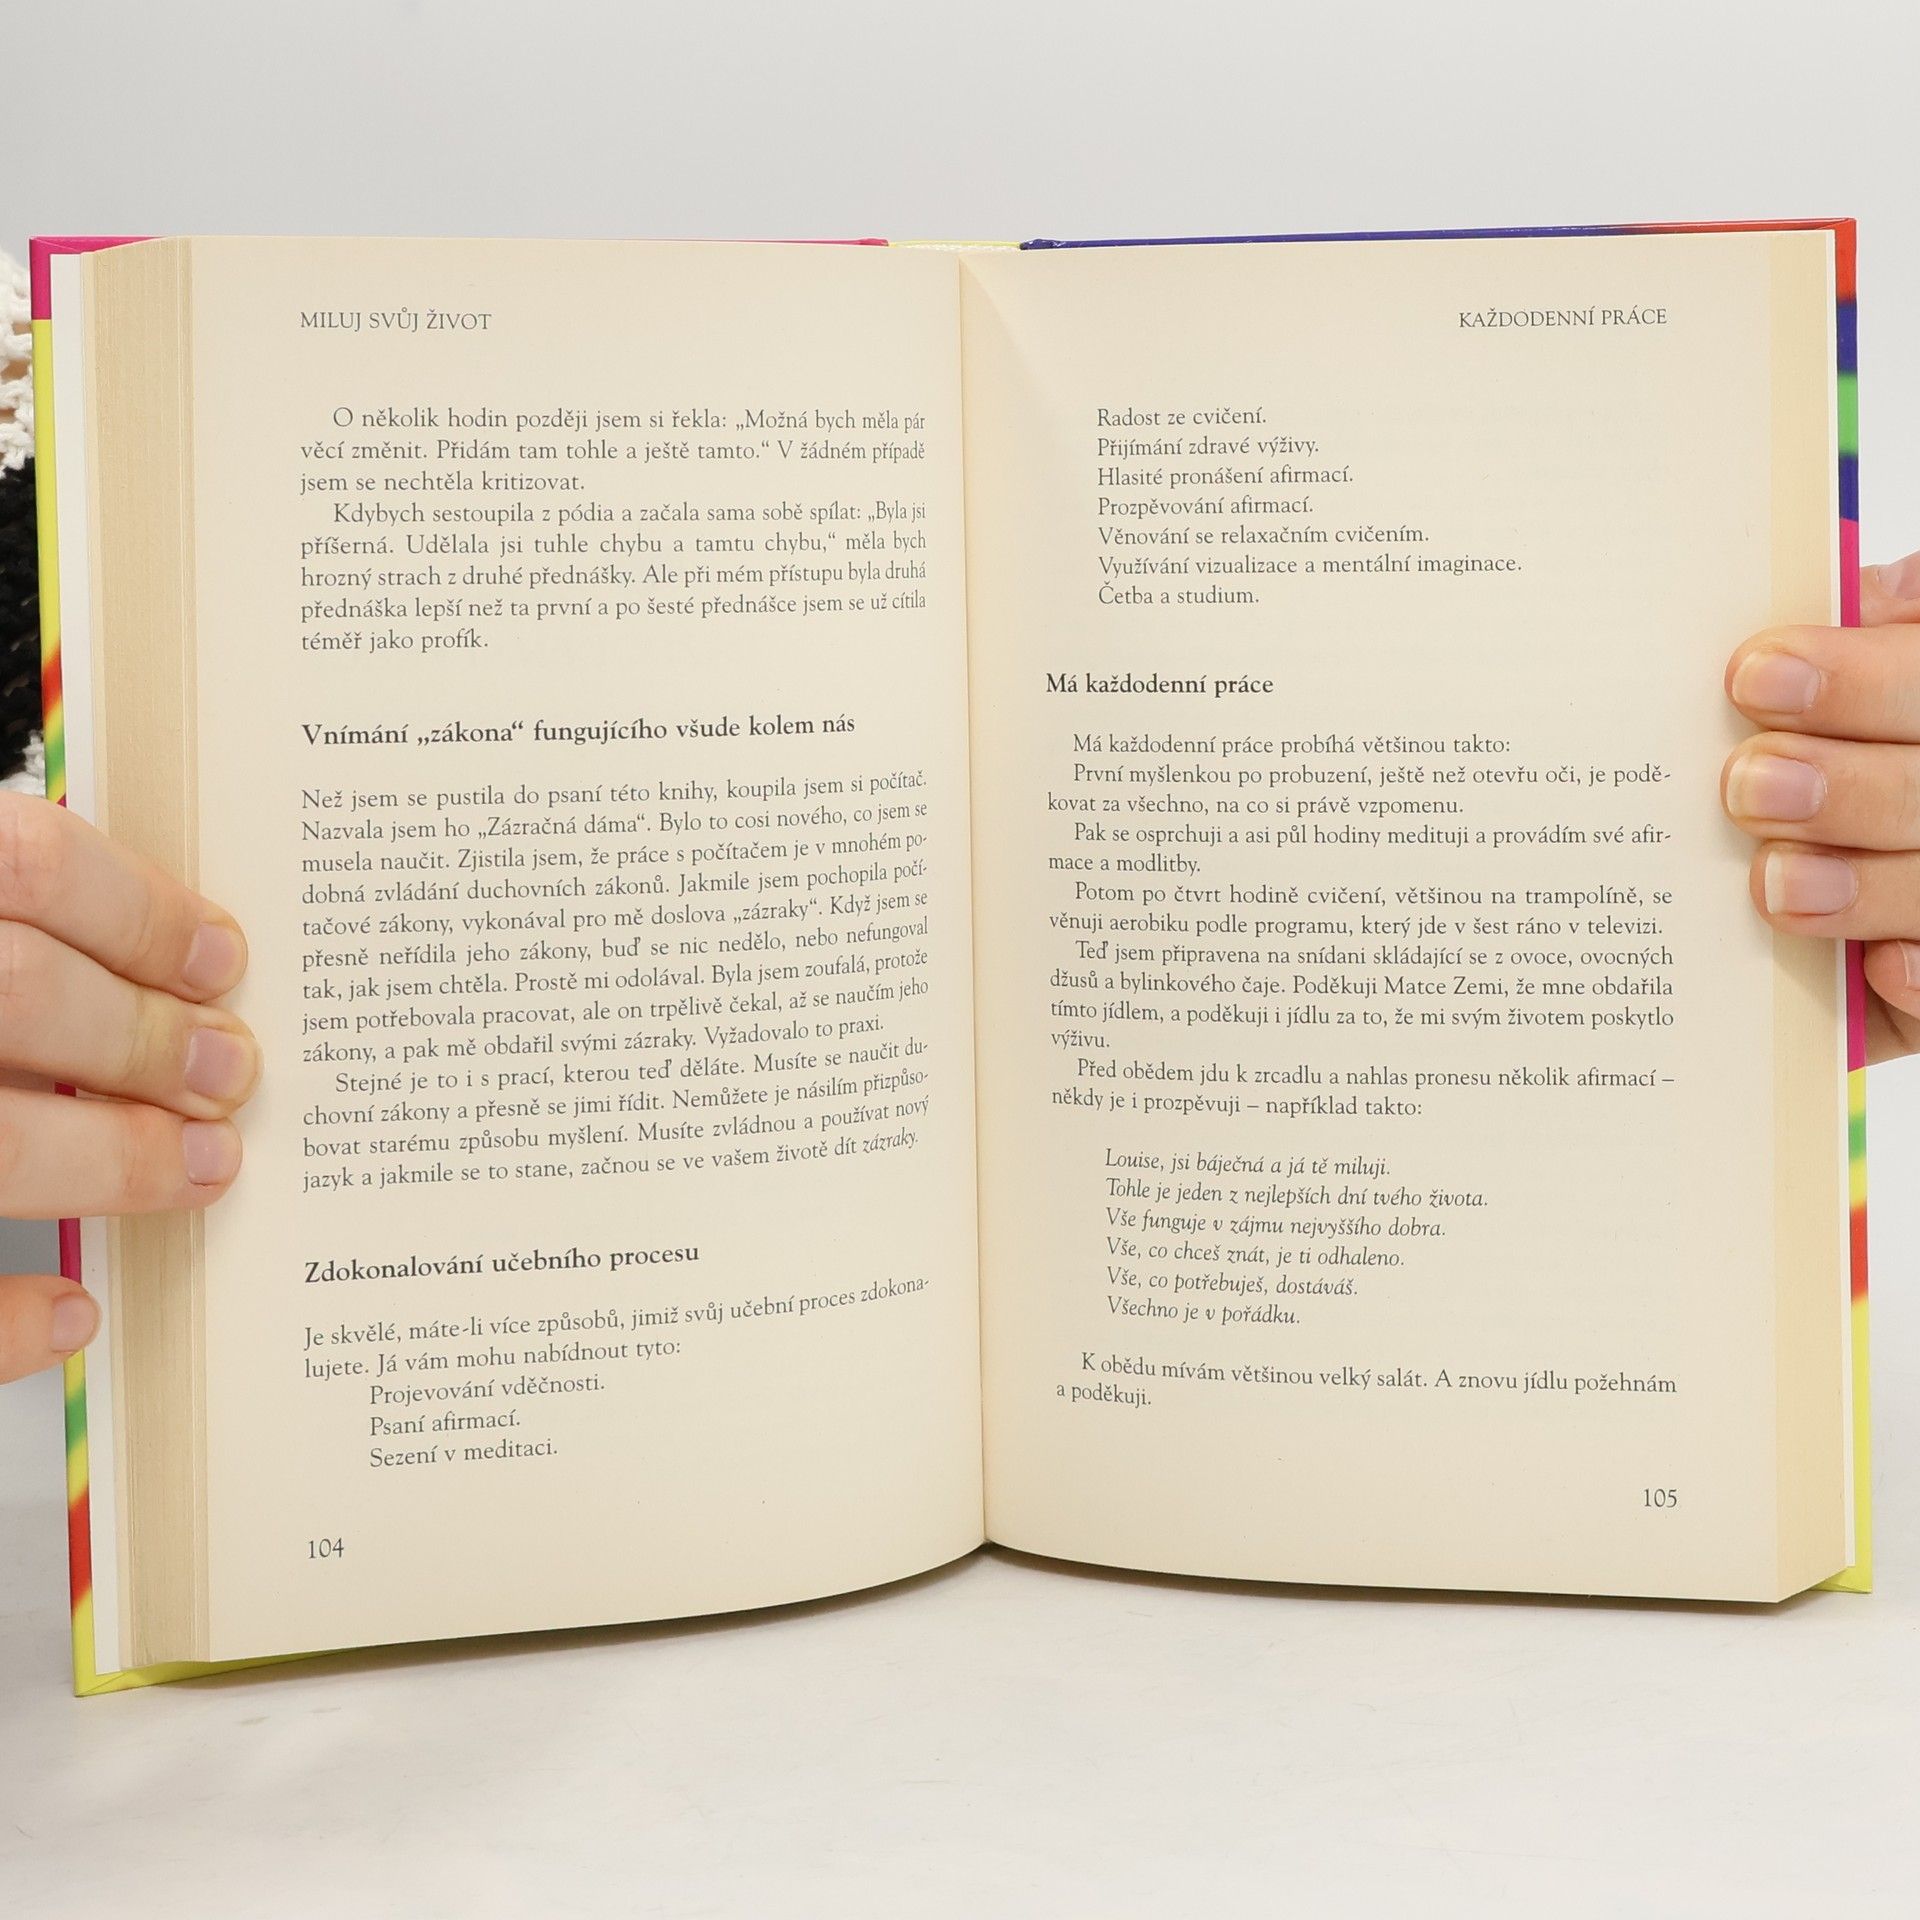 MILUJ SVŮJ ŽIVOT
O několik hodin později jsem si řekla: „Možná bych měla pár
věcí změnit. Přidám tam tohle a ještě tamto.“ V žádném případě
jsem se nechtěla kritizovat.
Kdybych sestoupila z pódia a začala sama sobě spílat: „Byla jsi
příšerná. Udělala jsi tuhle chybu a tamtu chybu,“ měla bych
hrozný strach z druhé přednášky. Ale při mém přístupu byla druhá
přednáška lepší než ta první a po šesté přednášce jsem se už cítila
téměř jako profík.
Vnímání „zákona“ fungujícího všude kolem nás
Než jsem se pustila do psaní této knihy, koupila jsem si počítač.
Nazvala jsem ho „Zázračná dáma“. Bylo to cosi nového, co jsem se
musela naučit. Zjistila jsem, že práce s počítačem je v mnohém po-
dobná zvládání duchovních zákonů. Jakmile jsem pochopila počí-
tačové zákony, vykonával pro mě doslova „zázraky“. Když jsem se
přesně neřídila jeho zákony, buď se nic nedělo, nebo nefungoval
tak, jak jsem chtěla. Prostě mi odolával. Byla jsem zoufalá, protože
jsem potřebovala pracovat, ale on trpělivě čekal, až se naučím jeho
zákony, a pak mě obdařil svými zázraky. Vyžadovalo to praxi.
Stejné je to i s prací, kterou teď děláte. Musíte se naučit du-
chovní zákony a přesně se jimi řídit. Nemůžete je násilím přizpůso-
bovat starému způsobu myšlení. Musíte zvládnou a používat nový
jazyk a jakmile se to stane, začnou se ve vašem životě dít zázraky.
Zdokonalování učebního procesu
Je skvělé, máte-li více způsobů, jimiž svůj učební proces zdokona-
lujete. Já vám mohu nabídnout tyto:
Projevování vděčnosti.
Psaní afirmací.
Sezení v meditaci.
104
KAŽDODENNÍ PRÁCE
Radost ze cvičení.
Přijímání zdravé výživy.
Hlasité pronášení afirmací.
Prozpěvování afirmací.
Věnování se relaxačním cvičením.
Využívání vizualizace a mentální imaginace.
Četba a studium.
Má každodenní práce
Má každodenní práce probíhá většinou takto:
První myšlenkou po probuzení, ještě než otevřu oči, je podě-
kovat za všechno, na co si právě vzpomenu.
Pak se osprchuji a asi půl hodiny medituji a provádím své afir-
mace a modlitby.
Potom po čtvrt hodině cvičení, většinou na trampolíně, se
věnuji aerobiku podle programu, který jde v šest ráno v televizi.
Teď jsem připravena na snídani skládající se z ovoce, ovocných
džusů a bylinkového čaje. Poděkuji Matce Zemi, že mne obdařila
tímto jídlem, a poděkuji i jídlu za to, že mi svým životem poskytlo
výživu.
Před obědem jdu k zrcadlu a nahlas pronesu několik afirmací –
někdy je i prozpěvuji – například takto:
Louise, jsi báječná a já tě miluji.
Tohle je jeden z nejlepších dní tvého života.
Vše funguje v zájmu nejvyššího dobra.
Vše, co chceš znát, je ti odhaleno.
Vše, co potřebuješ, dostáváš.
Všechno je v pořádku.
K obědu mívám většinou velký salát. A znovu jídlu požehnám
a poděkuji.
105